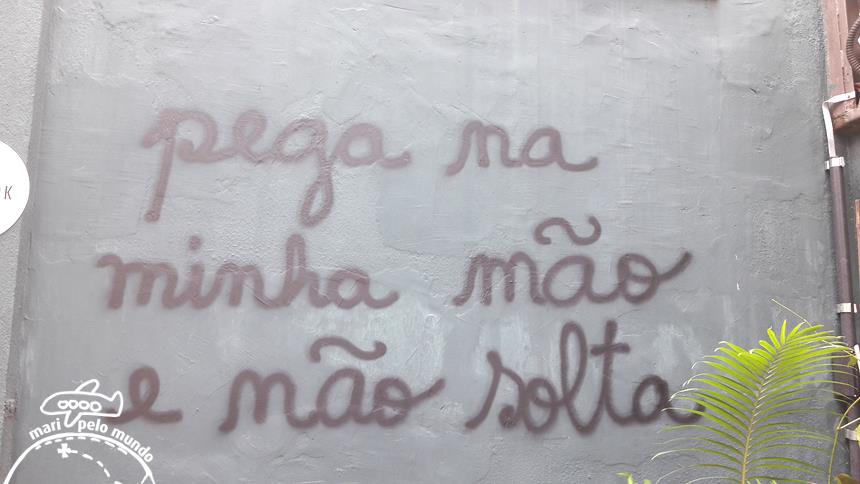 pega na
minha mão
e não solta
K
mari pelo mundo